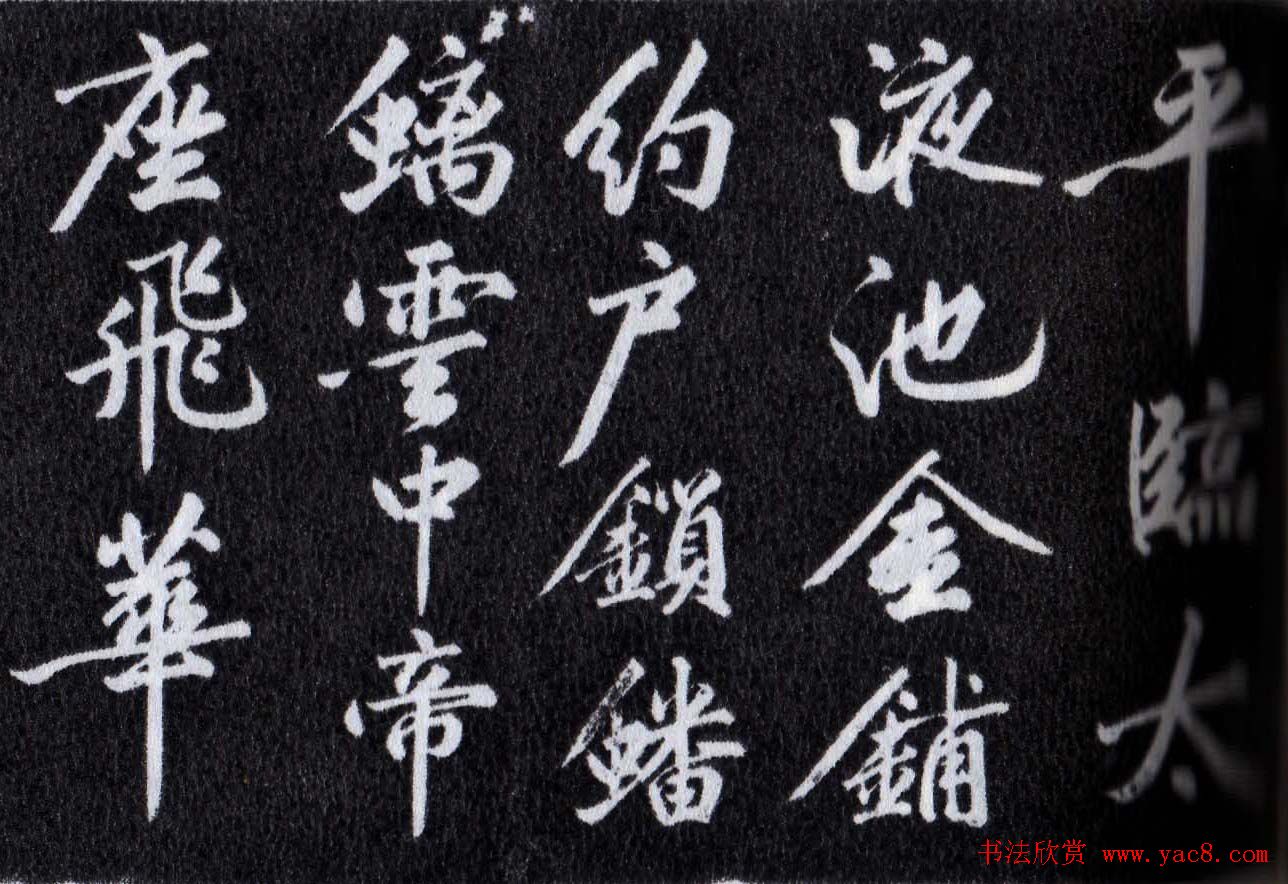 平臨太
液池金鋪
約户鎖蟠
螭雲中帝
座飛華
书法欣赏 www.yac8.com